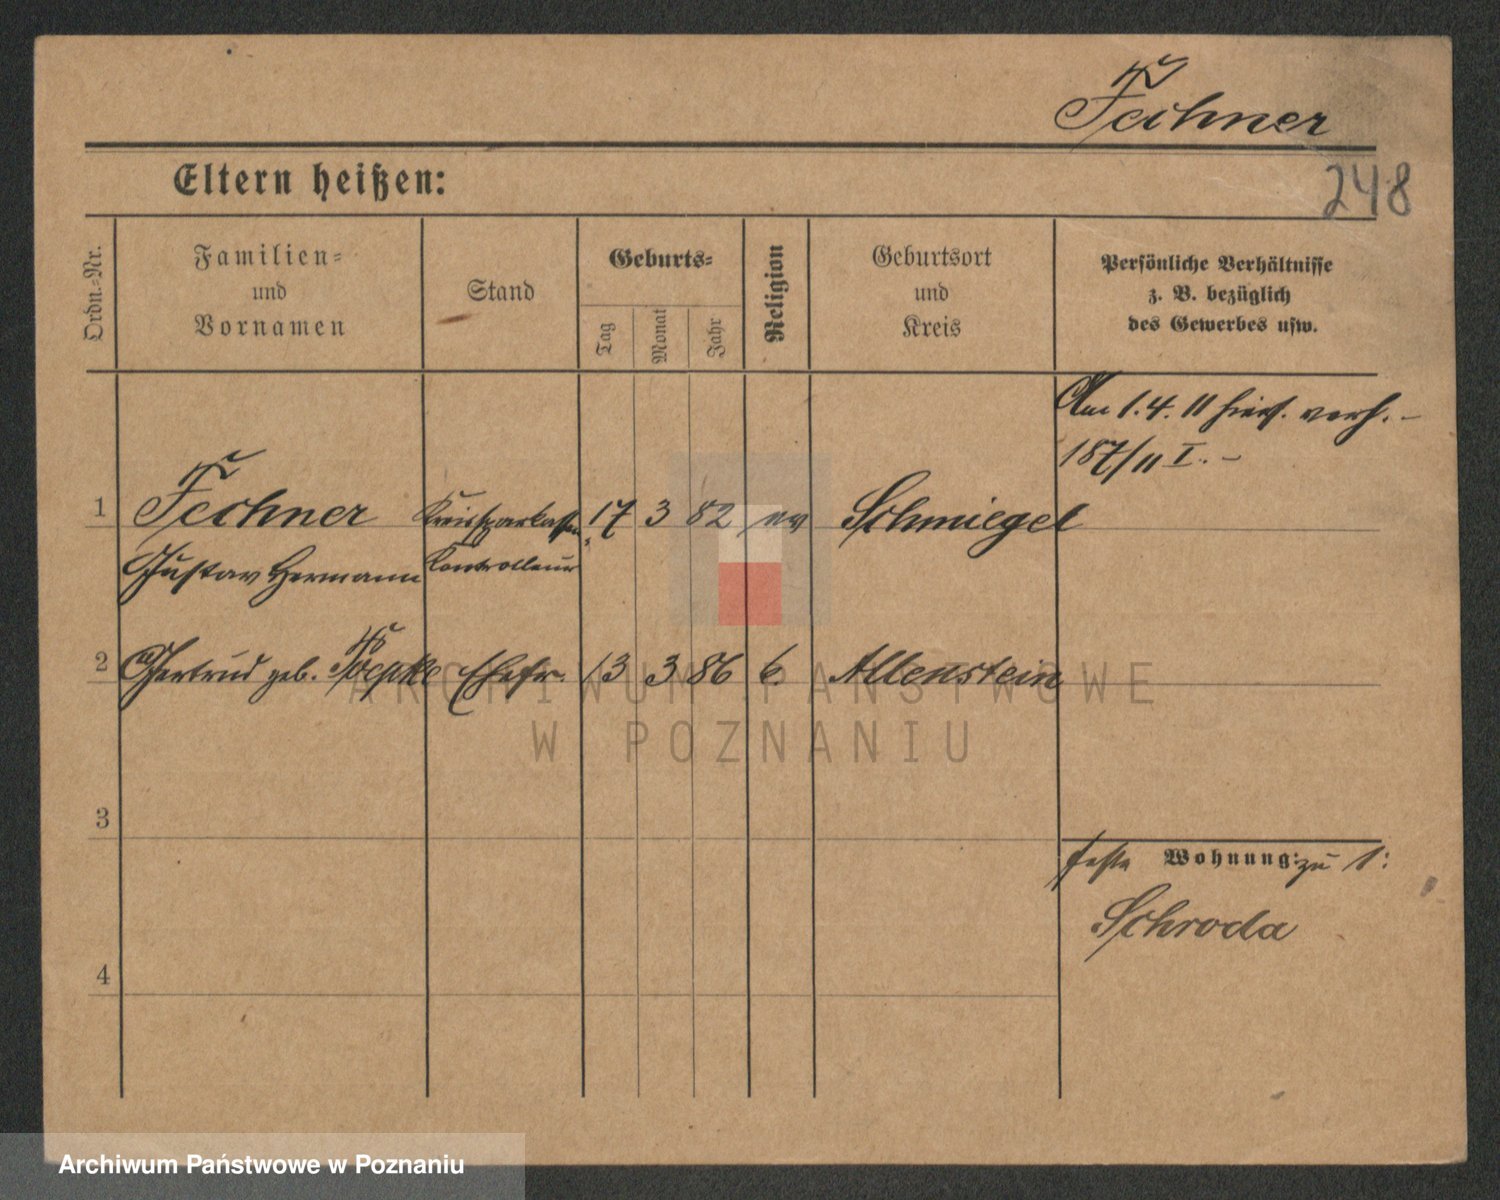 Fechner
Eltern heißen:
248
Ordn.-Nr.
Familien-
und
Vornamen
Stand
Geburts-
Tag
Monat
Jahr
Religion
Geburtsort
und
Kreis
Persönliche Verhältnisse
z. B. bezüglich
des Gewerbes usw.
Am 1.4.11 hiers. verh. –
187/11 I. –
1 Fechner Kreissparkassen 17 3 82 ev Schmiegel
Gustav Hermann Kontrolleur
2 Gertrud geb. Ehefr. 13 3 86 Allenstein
3
feste Wohnung: zu 1:
Schroda
4
ARCHIWUM PAŃSTWOWE
W POZNANIU
Archiwum Państwowe w Poznaniu